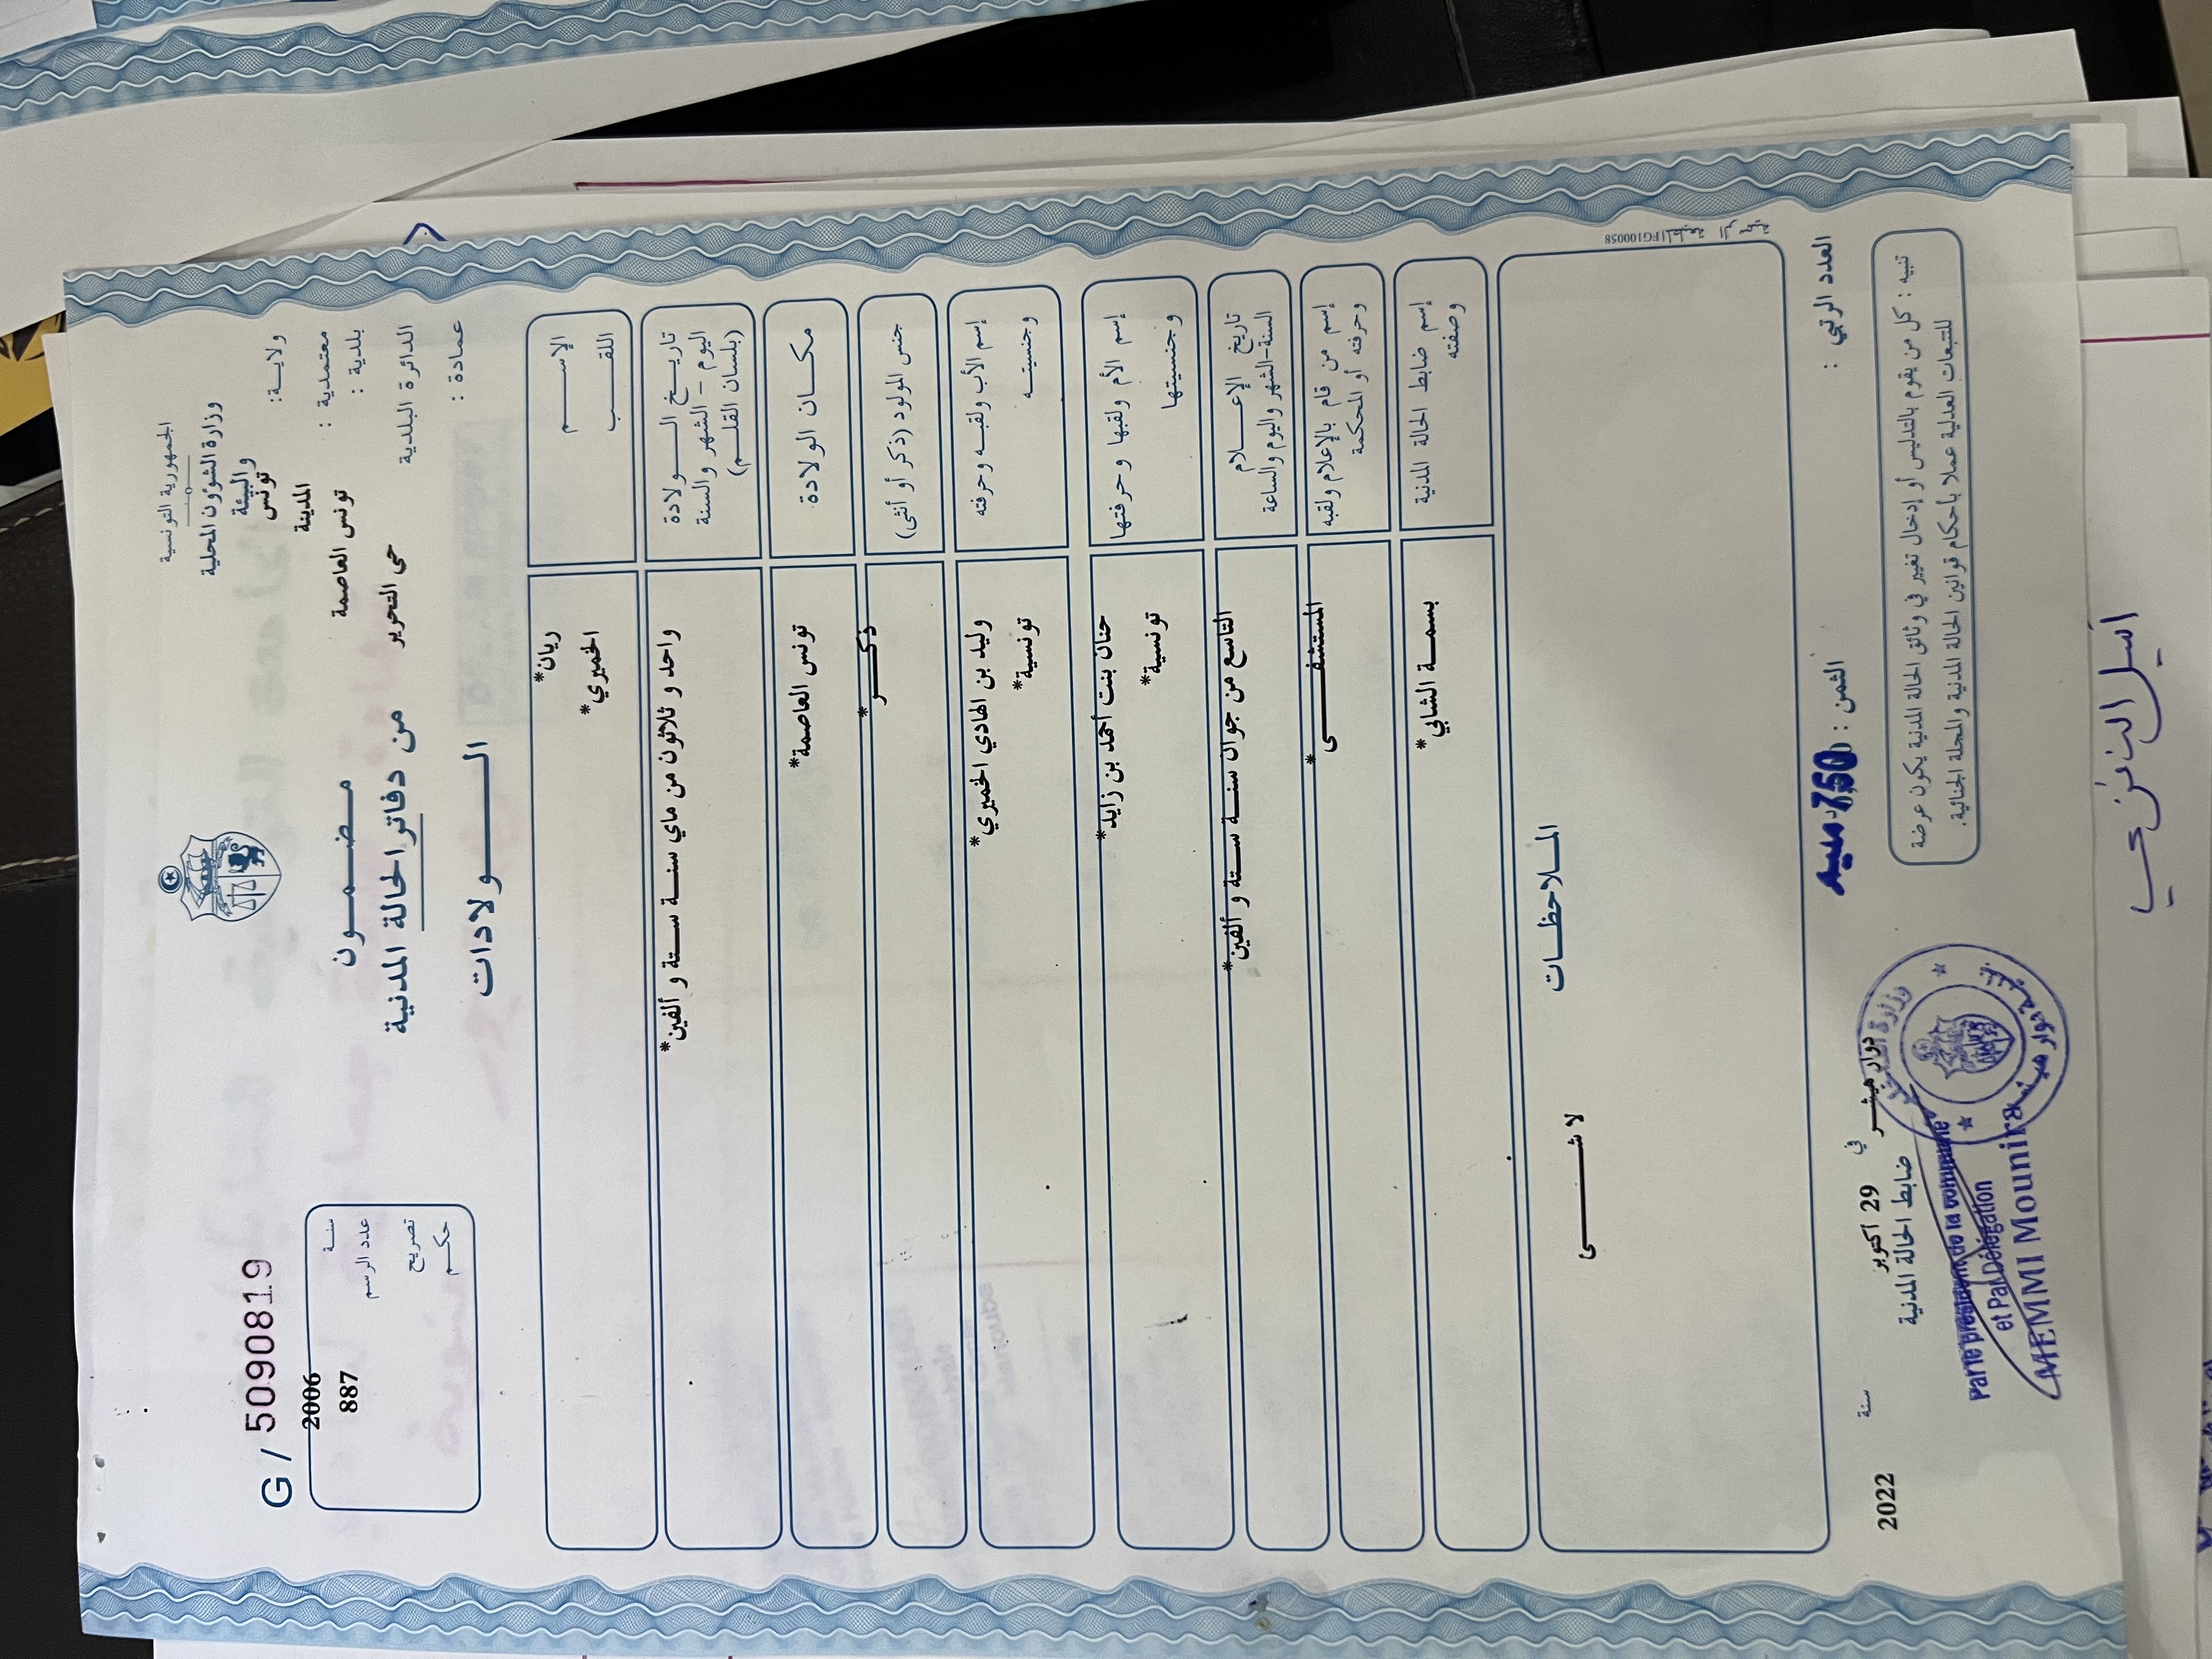 الجمهورية التونسية
وزارة الشؤون المحلية
والبيئة
ولاية: تونس
معتمدية : المدينة
بلدية : تونس العاصمة
الدائرة البلدية حي التحرير
عمادة :
مضمون
من دفاتر الحالة المدنية
الولادات
G / 5090819
سنة 2006
عدد الرسم 887
تصريح
حكم
الإسم ريان*
اللقب الخميري*
تاريخ الولادة
اليوم - الشهر والسنة
(بلسان القلم)
واحد و ثلاثون من ماي سنة ستة و ألفين*
مكان الولادة تونس العاصمة*
جنس المولود (ذكر أو أنثى) ذكر*
إسم الأب ولقبه وحرفته وليد بن الهادي الخميري*
وجنسيته تونسية*
إسم الأم ولقبها وحرفتها حنان بنت أحمد بن زايد*
وجنسيتها تونسية*
تاريخ الإعلام
السنة-الشهر واليوم والساعة
التاسع من جوان سنة ستة و ألفين*
إسم من قام بالإعلام ولقبه
وحرفته أو المحكمة
المستشفى*
إسم ضابط الحالة المدنية
وصفته
بسمة الشابي*
الملاحظات
لا شئ
FG100058المطبعة الرسمية
العدد الرتبي :
الثمن : 750 مليم
دوار هيشر في 29 أكتوبر سنة 2022
ضابط الحالة المدنية
Par le président de la commune
et Par Délégation
MEMMI Mounira
تنبيه : كل من يقوم بالتدليس أو إدخال تغيير في وثائق الحالة المدنية يكون عرضة
للتتبعات العدلية عملا بأحكام قوانين الحالة المدنية والمجلة الجنائية.